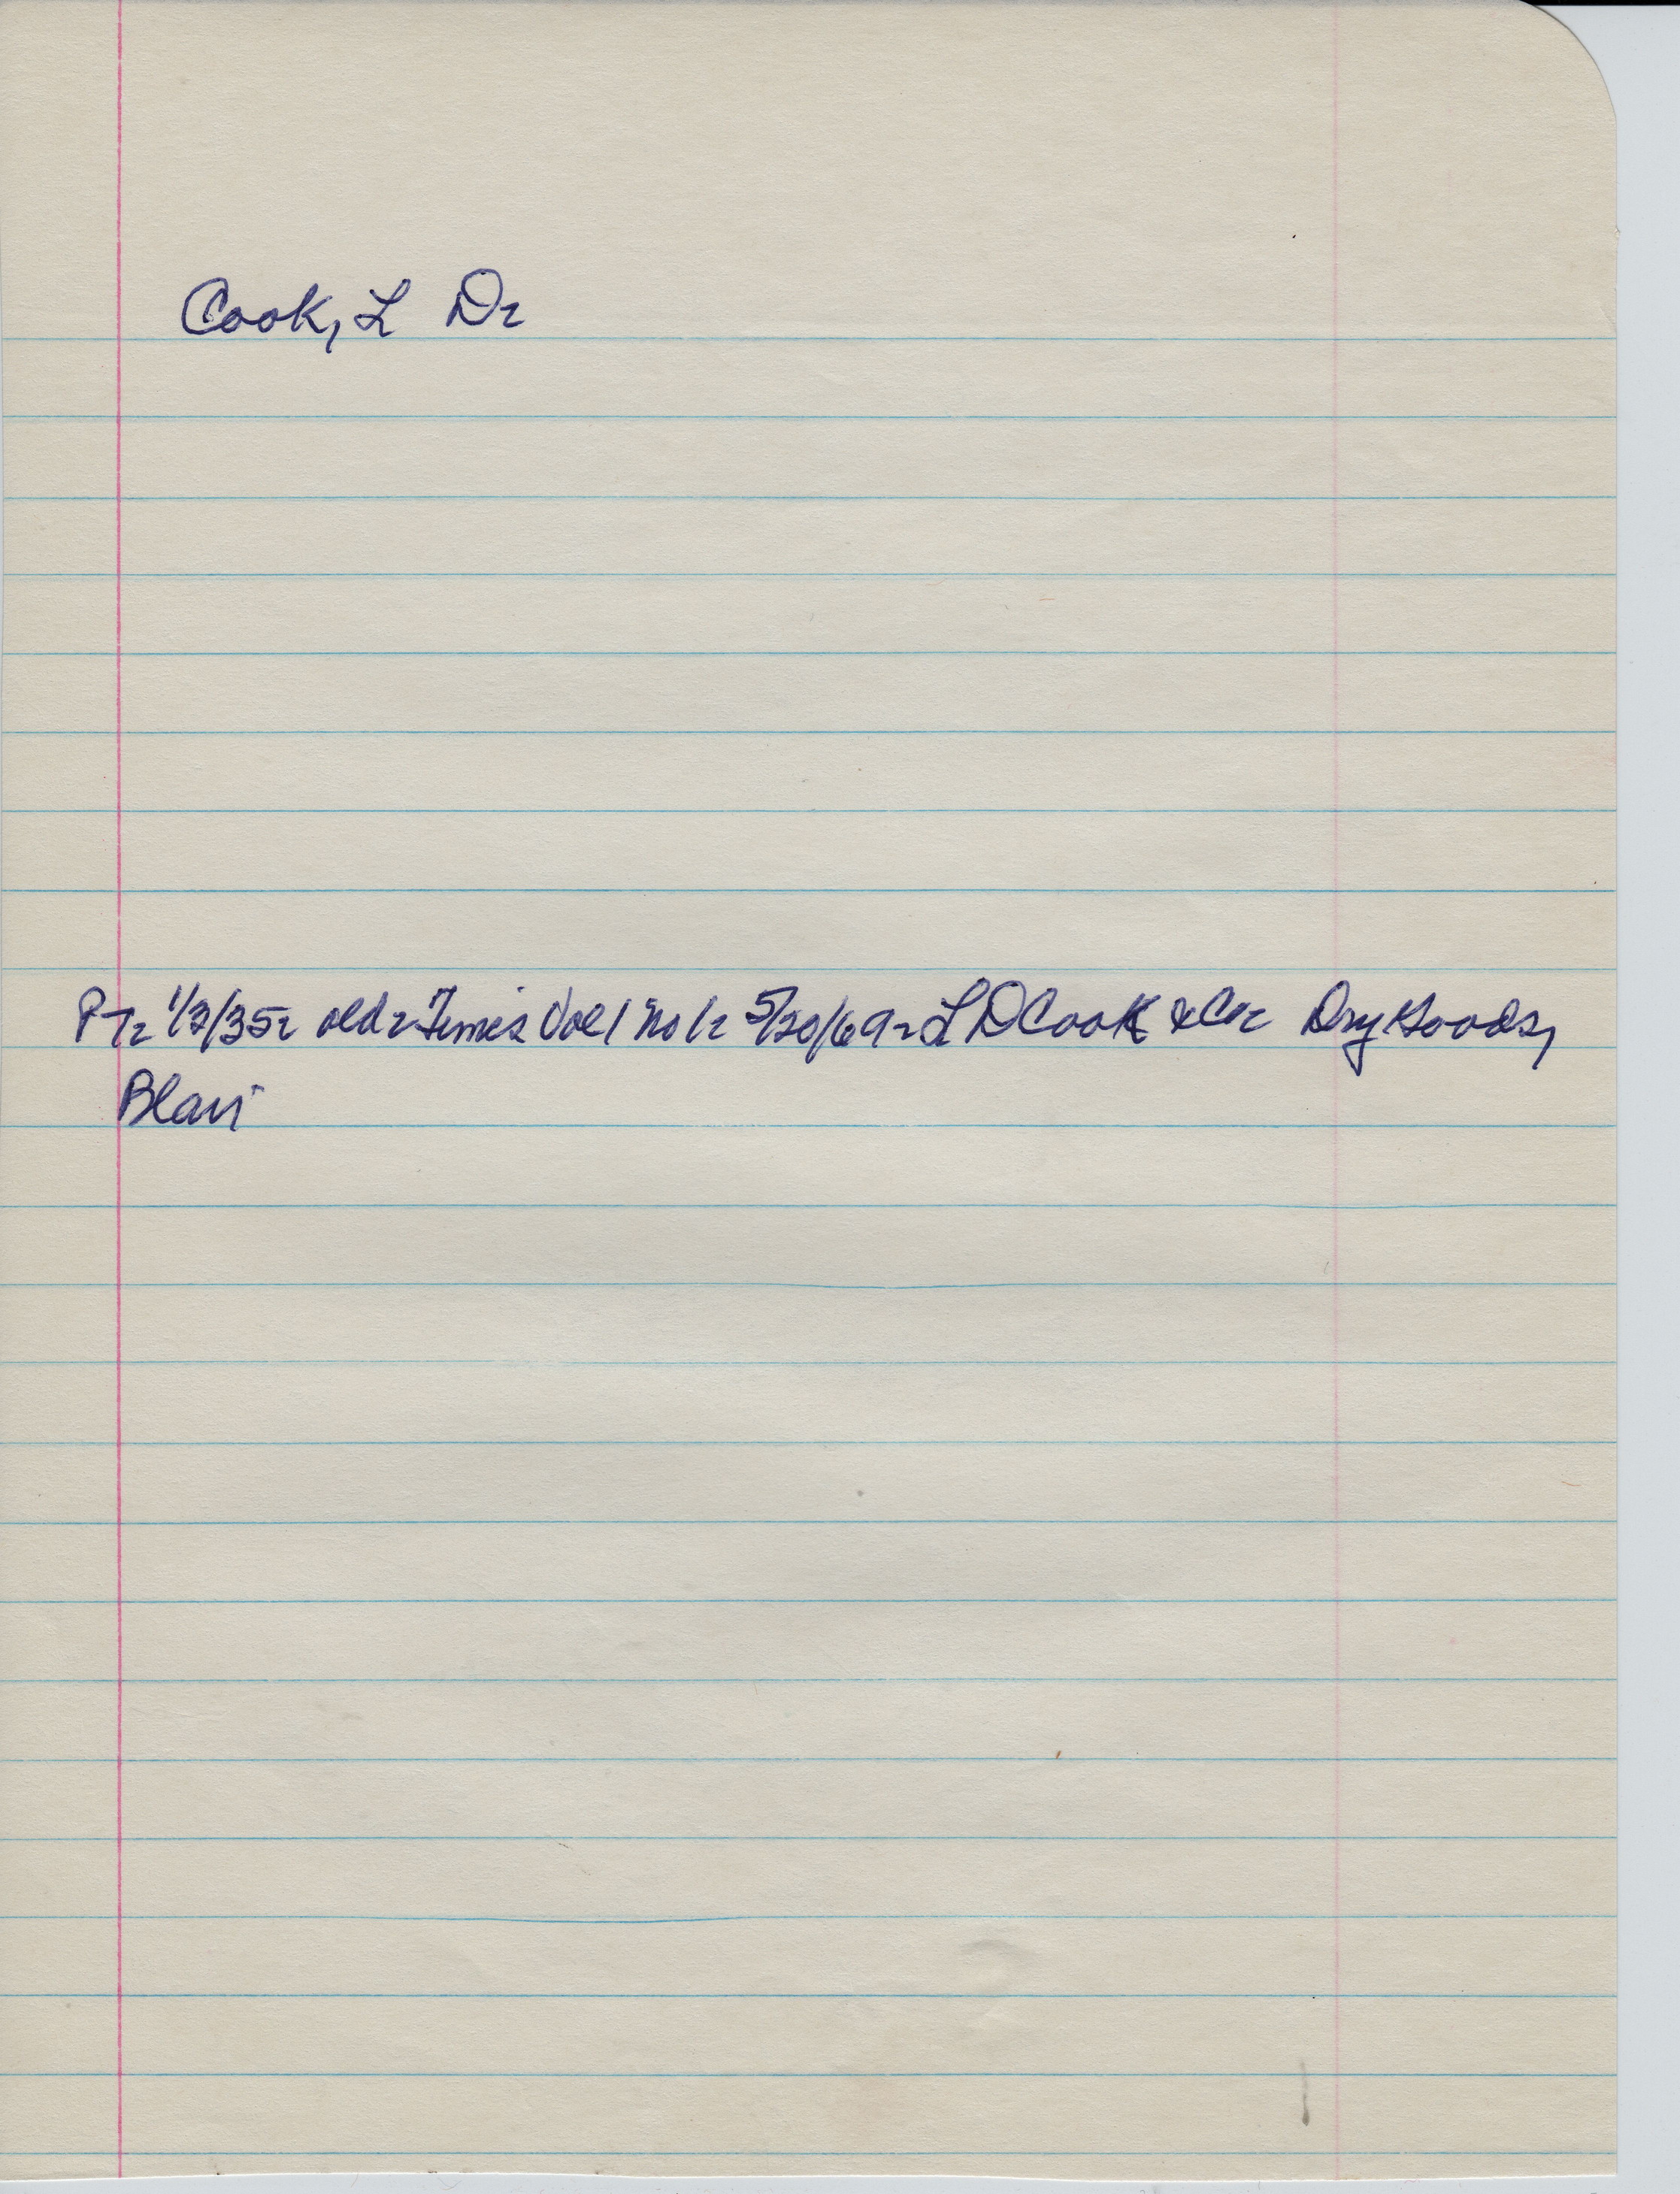 Cook, L D-
PT- 1/3/35- old-Times Vol 1 No 1- 5/20/69-L D Cook & Co- Dry Goods,
Blair